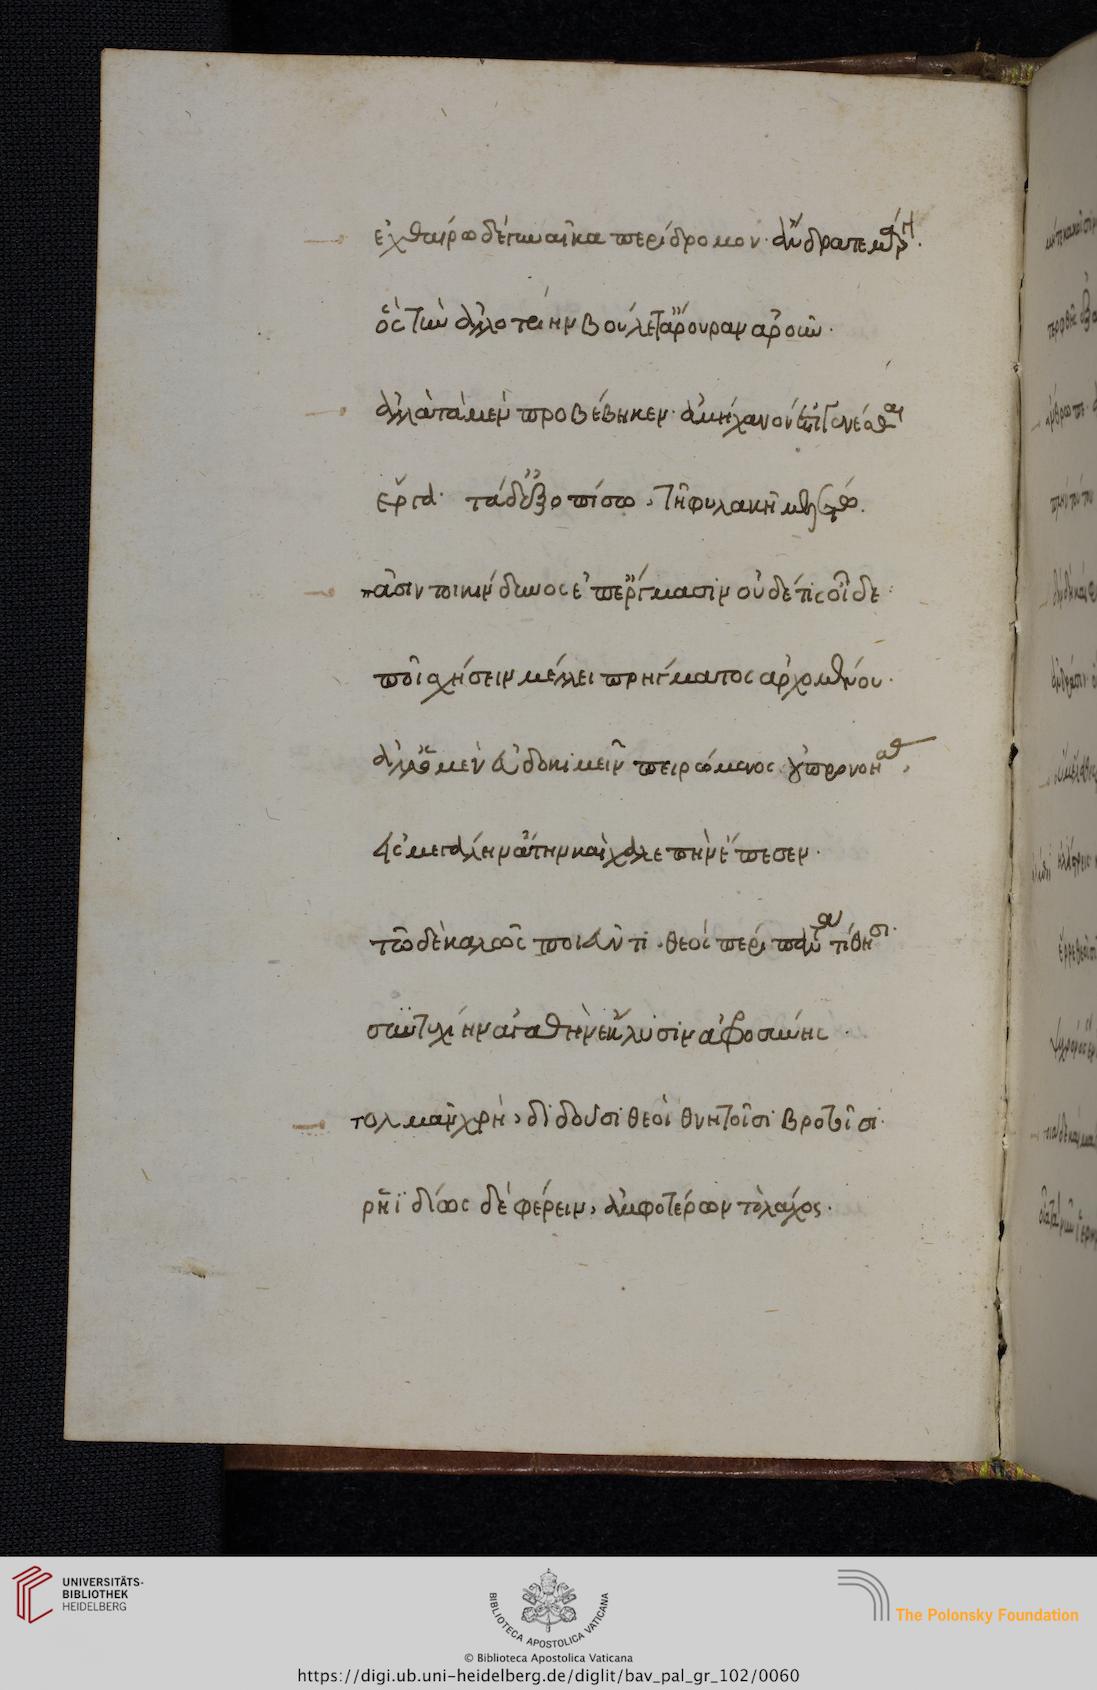 ἐχθαίρω δὲ γυναῖκα περίδρομον· ἄνδρά τε μάργον.
ὃς τὴν ἀλλοτρίην βούλετ' ἄρουραν ἀροῦν.
ἀλλὰ τὰ μὲν προβέβηκεν· ἀμήχανόν ἐστι γενέσθαι
ἔργα· τὰ δ' ἐξοπίσω, τῇ φυλακῇ μελέτω.
πᾶσίν τοι κίνδυνος ἐπ' ἔργμασιν οὐδέ τις οἶδε
ποῖ σχήσειν μέλλει πρήγματος ἀρχομένου.
ἀλλ' ὁ μὲν εὐδοκιμεῖν πειρώμενος οὐ προνοήσας,
εἰς μεγάλην ἄτην καὶ χαλεπὴν ἔπεσεν.
τῷ δὲ καλῶς ποιεῦντι θεὸς περὶ πάντα τίθησι·
συντυχίην ἀγαθὴν ἔκλυσιν ἀφροσύνης.
τολμᾶν χρή, διδοῦσι θεοὶ θνητοῖσι βροτοῖσι·
ῥηϊδίως δὲ φέρειν, ἀμφοτέρων τὸ λάχος.
UNIVERSITÄTS-
BIBLIOTHEK
HEIDELBERG
BIBLIOTECA APOSTOLICA VATICANA
The Polonsky Foundation
© Biblioteca Apostolica Vaticana
https://digi.ub.uni-heidelberg.de/diglit/bav_pal_gr_102/0060